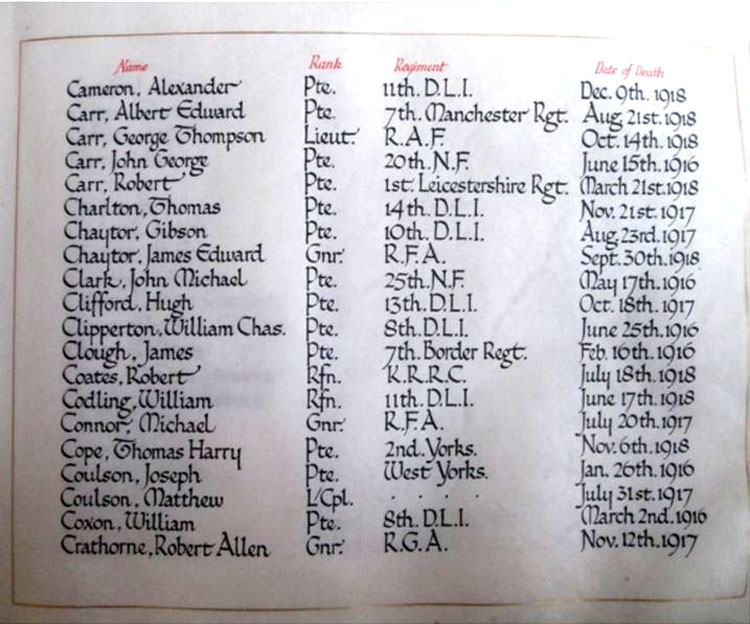 Name Rank Regiment Date of Death
Cameron, Alexander Pte. 11th. D.L.I. Dec. 9th. 1918
Carr, Albert Edward Pte. 7th. Manchester Rgt. Aug. 21st. 1918
Carr, George Thompson Lieut. R.A.F. Oct. 14th. 1918
Carr, John George Pte. 20th. N.F. June 15th. 1916
Carr, Robert Pte. 1st. Leicestershire Rgt. March 21st. 1918
Charlton, Thomas Pte. 14th. D.L.I. Nov. 21st. 1917
Chaytor, Gibson Pte. 10th. D.L.I. Aug. 23rd. 1917
Chaytor, James Edward Gnr. R.F.A. Sept. 30th. 1918
Clark, John Michael Pte. 25th. N.F. May 17th. 1916
Clifford, Hugh Pte. 13th. D.L.I. Oct. 18th. 1917
Clipperton, William Chas. Pte. 8th. D.L.I. June 25th. 1916
Clough, James Pte. 7th. Border Regt. Feb. 16th. 1916
Coates, Robert Rfn. K.R.R.C. July 18th. 1918
Codling, William Rfn. 11th. D.L.I. June 17th. 1918
Connor, Michael Gnr. R.F.A. July 20th. 1917
Cope, Thomas Harry Pte. 2nd. Yorks. Nov. 6th. 1918
Coulson, Joseph Pte. West Yorks. Jan. 26th. 1916
Coulson, Matthew L/Cpl. . . . . July 31st. 1917
Coxon, William Pte. 8th. D.L.I. March 2nd. 1916
Crathorne, Robert Allen Gnr. R.G.A. Nov. 12th. 1917